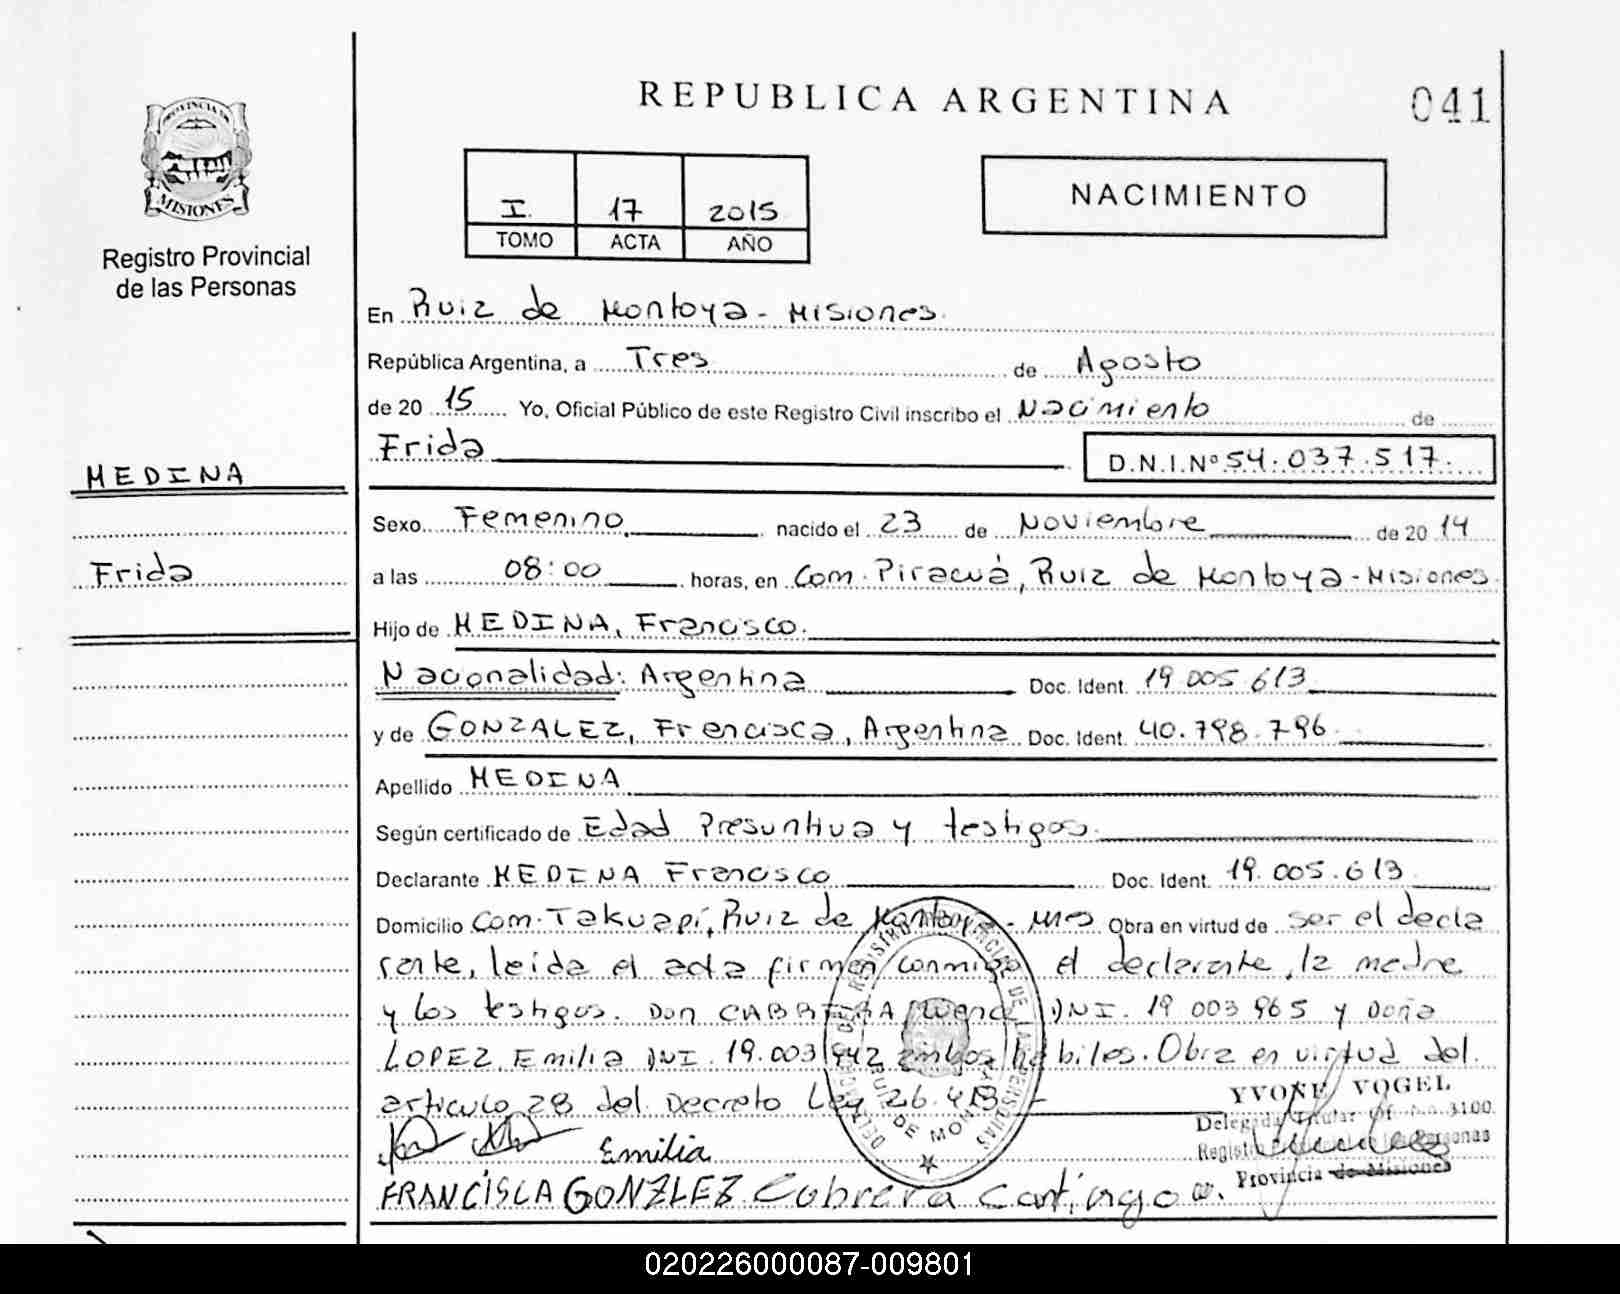 REPUBLICA ARGENTINA
041
PROVINCIA DE
MISIONES
Registro Provincial
de las Personas
I. 17 2015
TOMO ACTA AÑO
NACIMIENTO
En Ruiz de Montoya - Misiones.
República Argentina, a Tres de Agosto
de 20 15 Yo, Oficial Público de este Registro Civil inscribo el Nacimiento de
Frida D.N.I.Nº 54.037.517.
MEDINA
Frida
Sexo Femenino nacido el 23 de Noviembre de 20 14
a las 08:00 horas, en Com. Piracuá, Ruiz de Montoya - Misiones.
Hijo de MEDINA, Francisco.
Nacionalidad: Argentina Doc. Ident. 19.005.613
y de GONZALEZ, Francisca, Argentina Doc. Ident. 40.798.796
Apellido MEDINA
Según certificado de Edad Presuntiva y testigos.
Declarante MEDINA Francisco Doc. Ident. 19.005.613
Domicilio Com. Takuapí, Ruiz de Montoya - Mnes Obra en virtud de ser el decla
rante, leída el acta firman conmigo el declarante, la madre
y los testigos. Don CABRERA DNI. 19 003 965 y Doña
LOPEZ, Emilia DNI. 19.003.942 ambos hábiles. Obra en virtud del
artículo 28 del Decreto Ley 26.413 -
YVONE VOGEL
Delegada Titular Of. 3100
Registro Provincial de las Personas
Provincia de Misiones
Emilia
FRANCISCA GONZLEZ Cabrera
DELEGACION DEL REGISTRO PROVINCIAL DE LAS PERSONAS
RUIZ DE MONTOYA
020226000087-009801